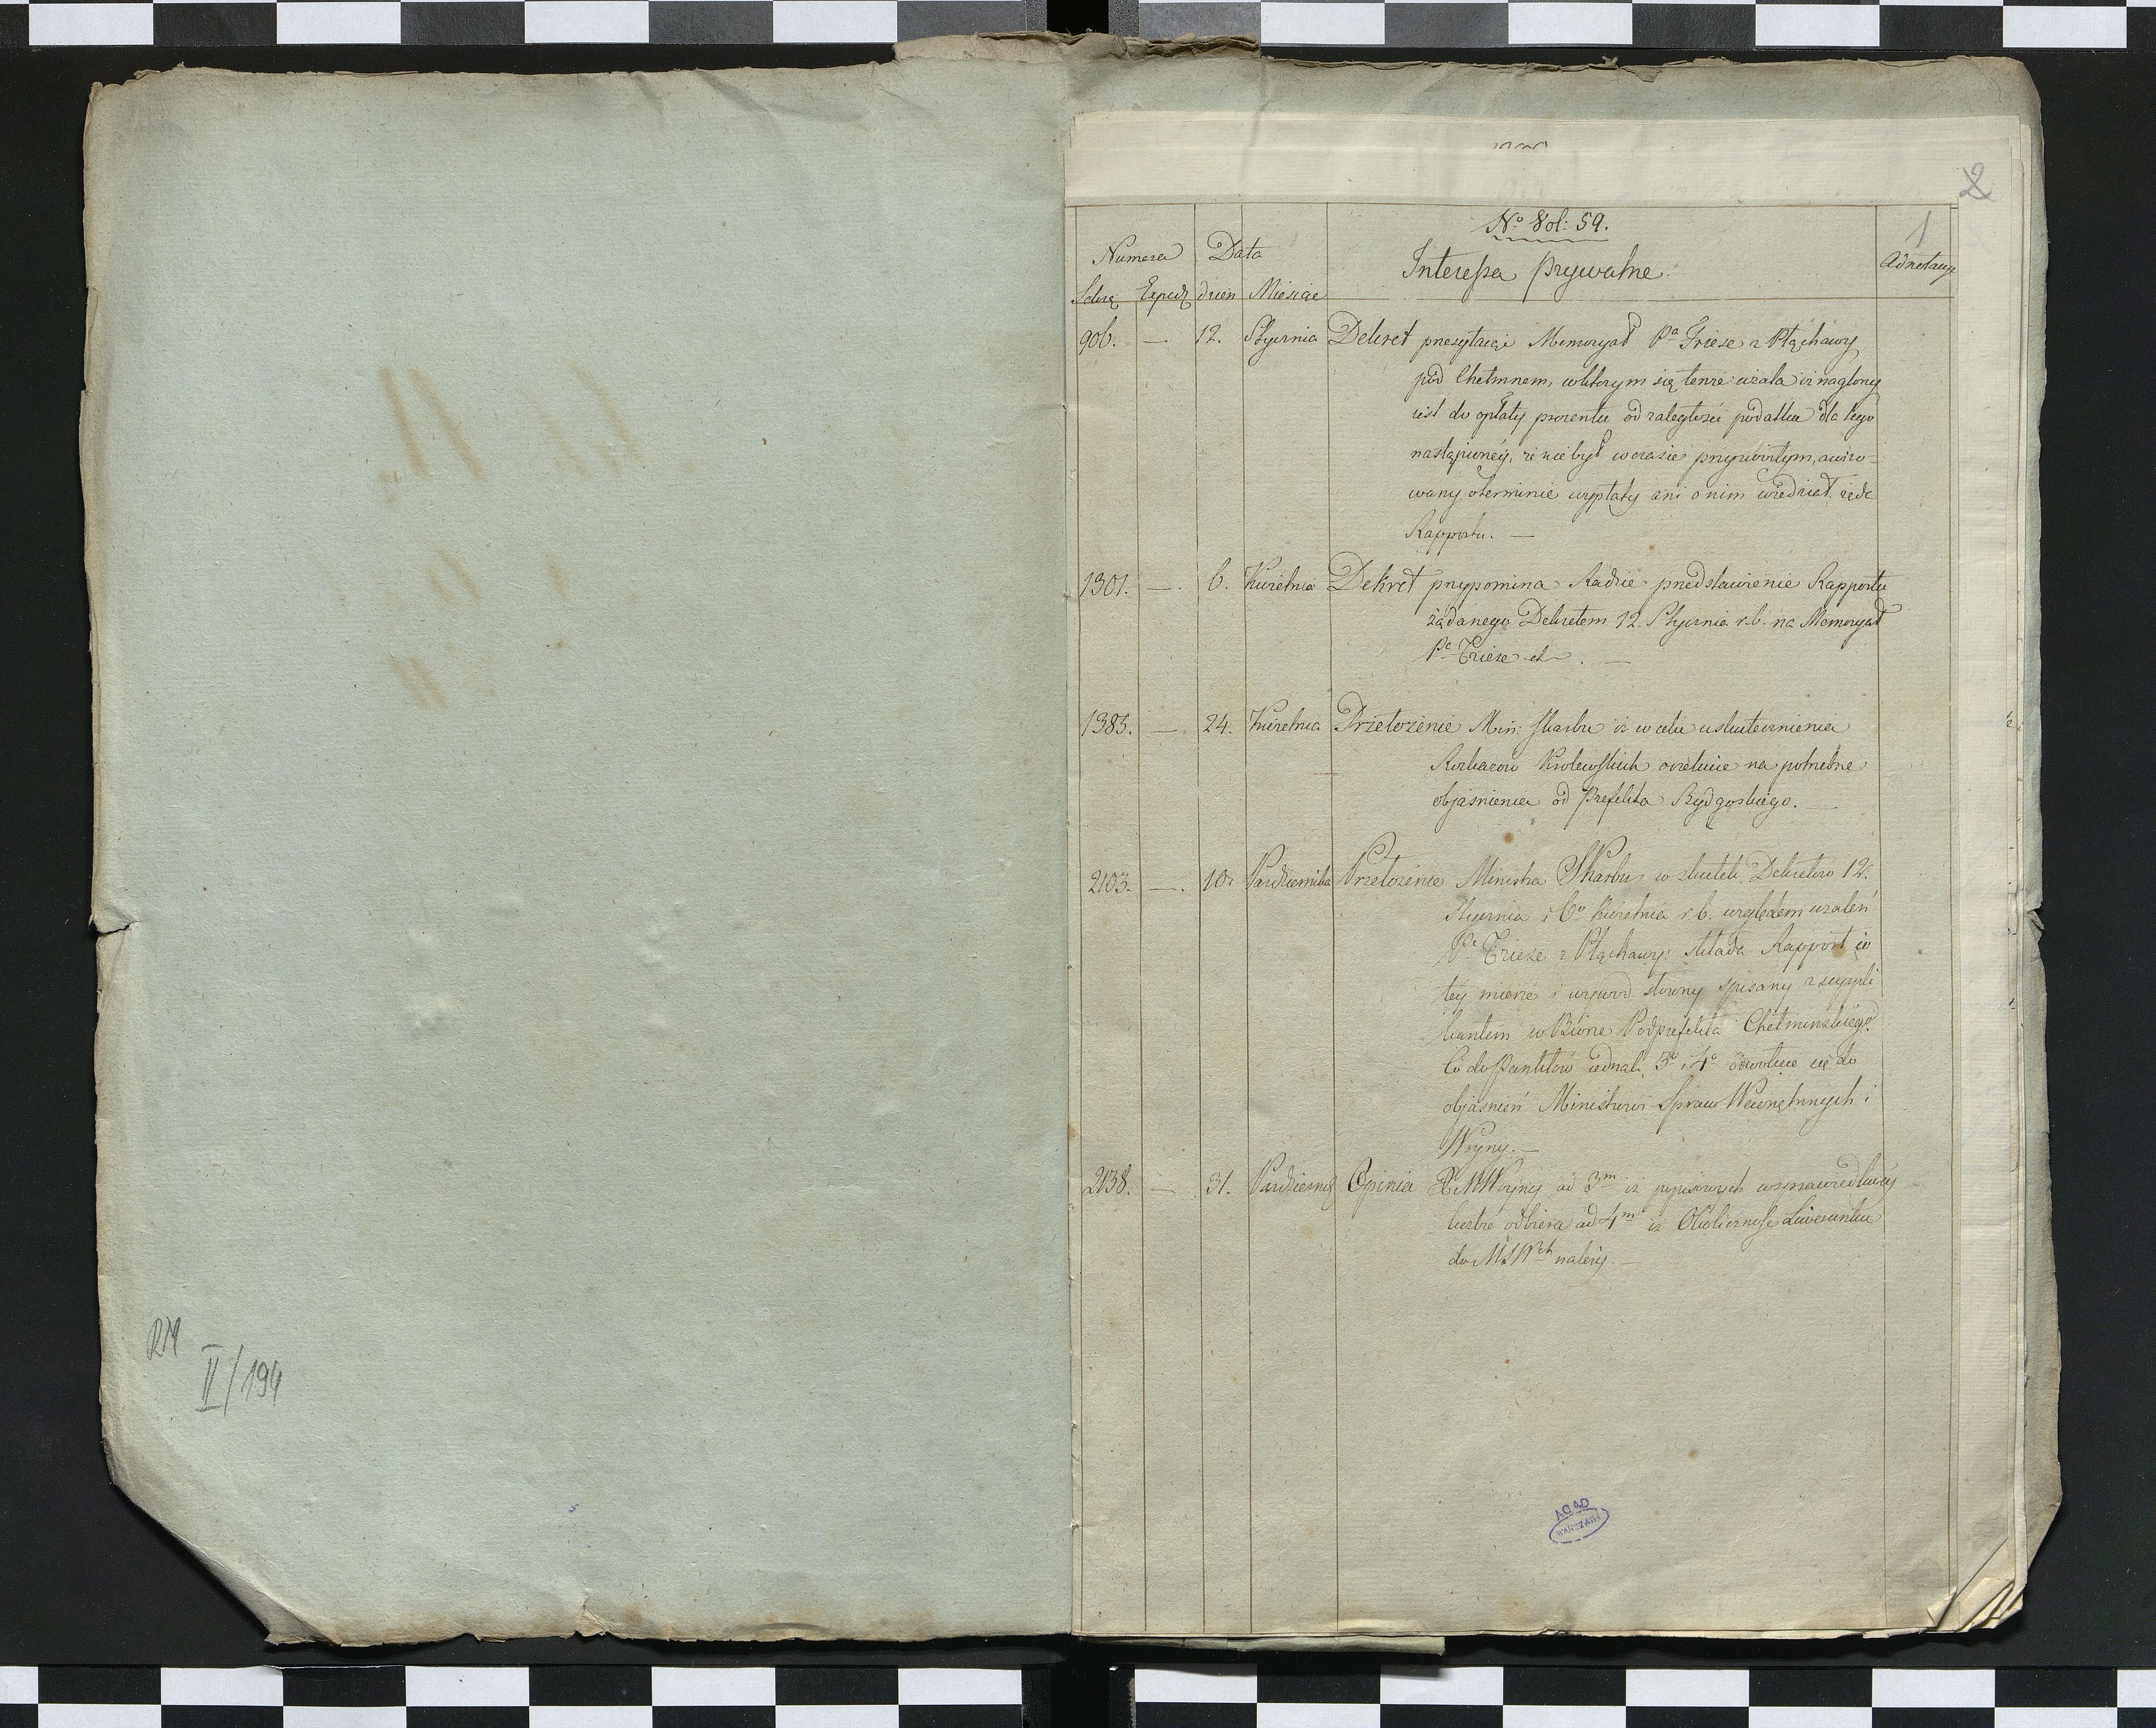 2
1
No Vol: 59.
Numera Data Interessa Prywatne. Adnotacye
Expedt dzien Miesiąc
906. — 12. Stycznia Dekret przesyłaiąc Memoryał Pa Friese z Płąchawy
pod Chełmnem, w którym się tenże użala iż naglony
iest do opłaty procentu od zaległości podatku dla tego
nastąpioney, że nie był w czasie przyzwoitym, awizo-
wany o terminie wypłaty ani o nim wiedział, żąda
Rapportu. —
1301. — 6. Kwietnia Dekret przypomina Radzie przedstawienie Rapportu
żądanego Dekretem 12. Stycznia r.b. na Memoryał
Pa Friese
1385. — 24. Kwietnia Przełożenie Min: Skarbu iż w celu uskutecznienia
Rozkazow Krolewskich oczekuie na potrzebne
obiaśnienia od Prefekta Bydgoskiego. —
2103. — 10. Październka Przełożenie Ministra Skarbu w skutek Dekretów 12.
Stycznia i 6o Kwietnia r.b. względem użaleń
Pa Friese z Płąchawy: składa Rapport w
tey mierze i wywod słowny spisany z suppli
kantem w Biórze Podprefekta Chełminskiego.
Co do Punktów iednak 3o i 4o odwołuie się do
obiaśnień Ministrów Spraw Wewnętrznych i
Woyny. —
2138. — 31. Październ Opinia M Woyny ad 3m iż popisowych w sprawiedliwéy
liczbie odbiera ad 4m iż Okoliczność Liwerunku
do MSWch należy. —
RM
II/194
AGAD
WARSZAWA